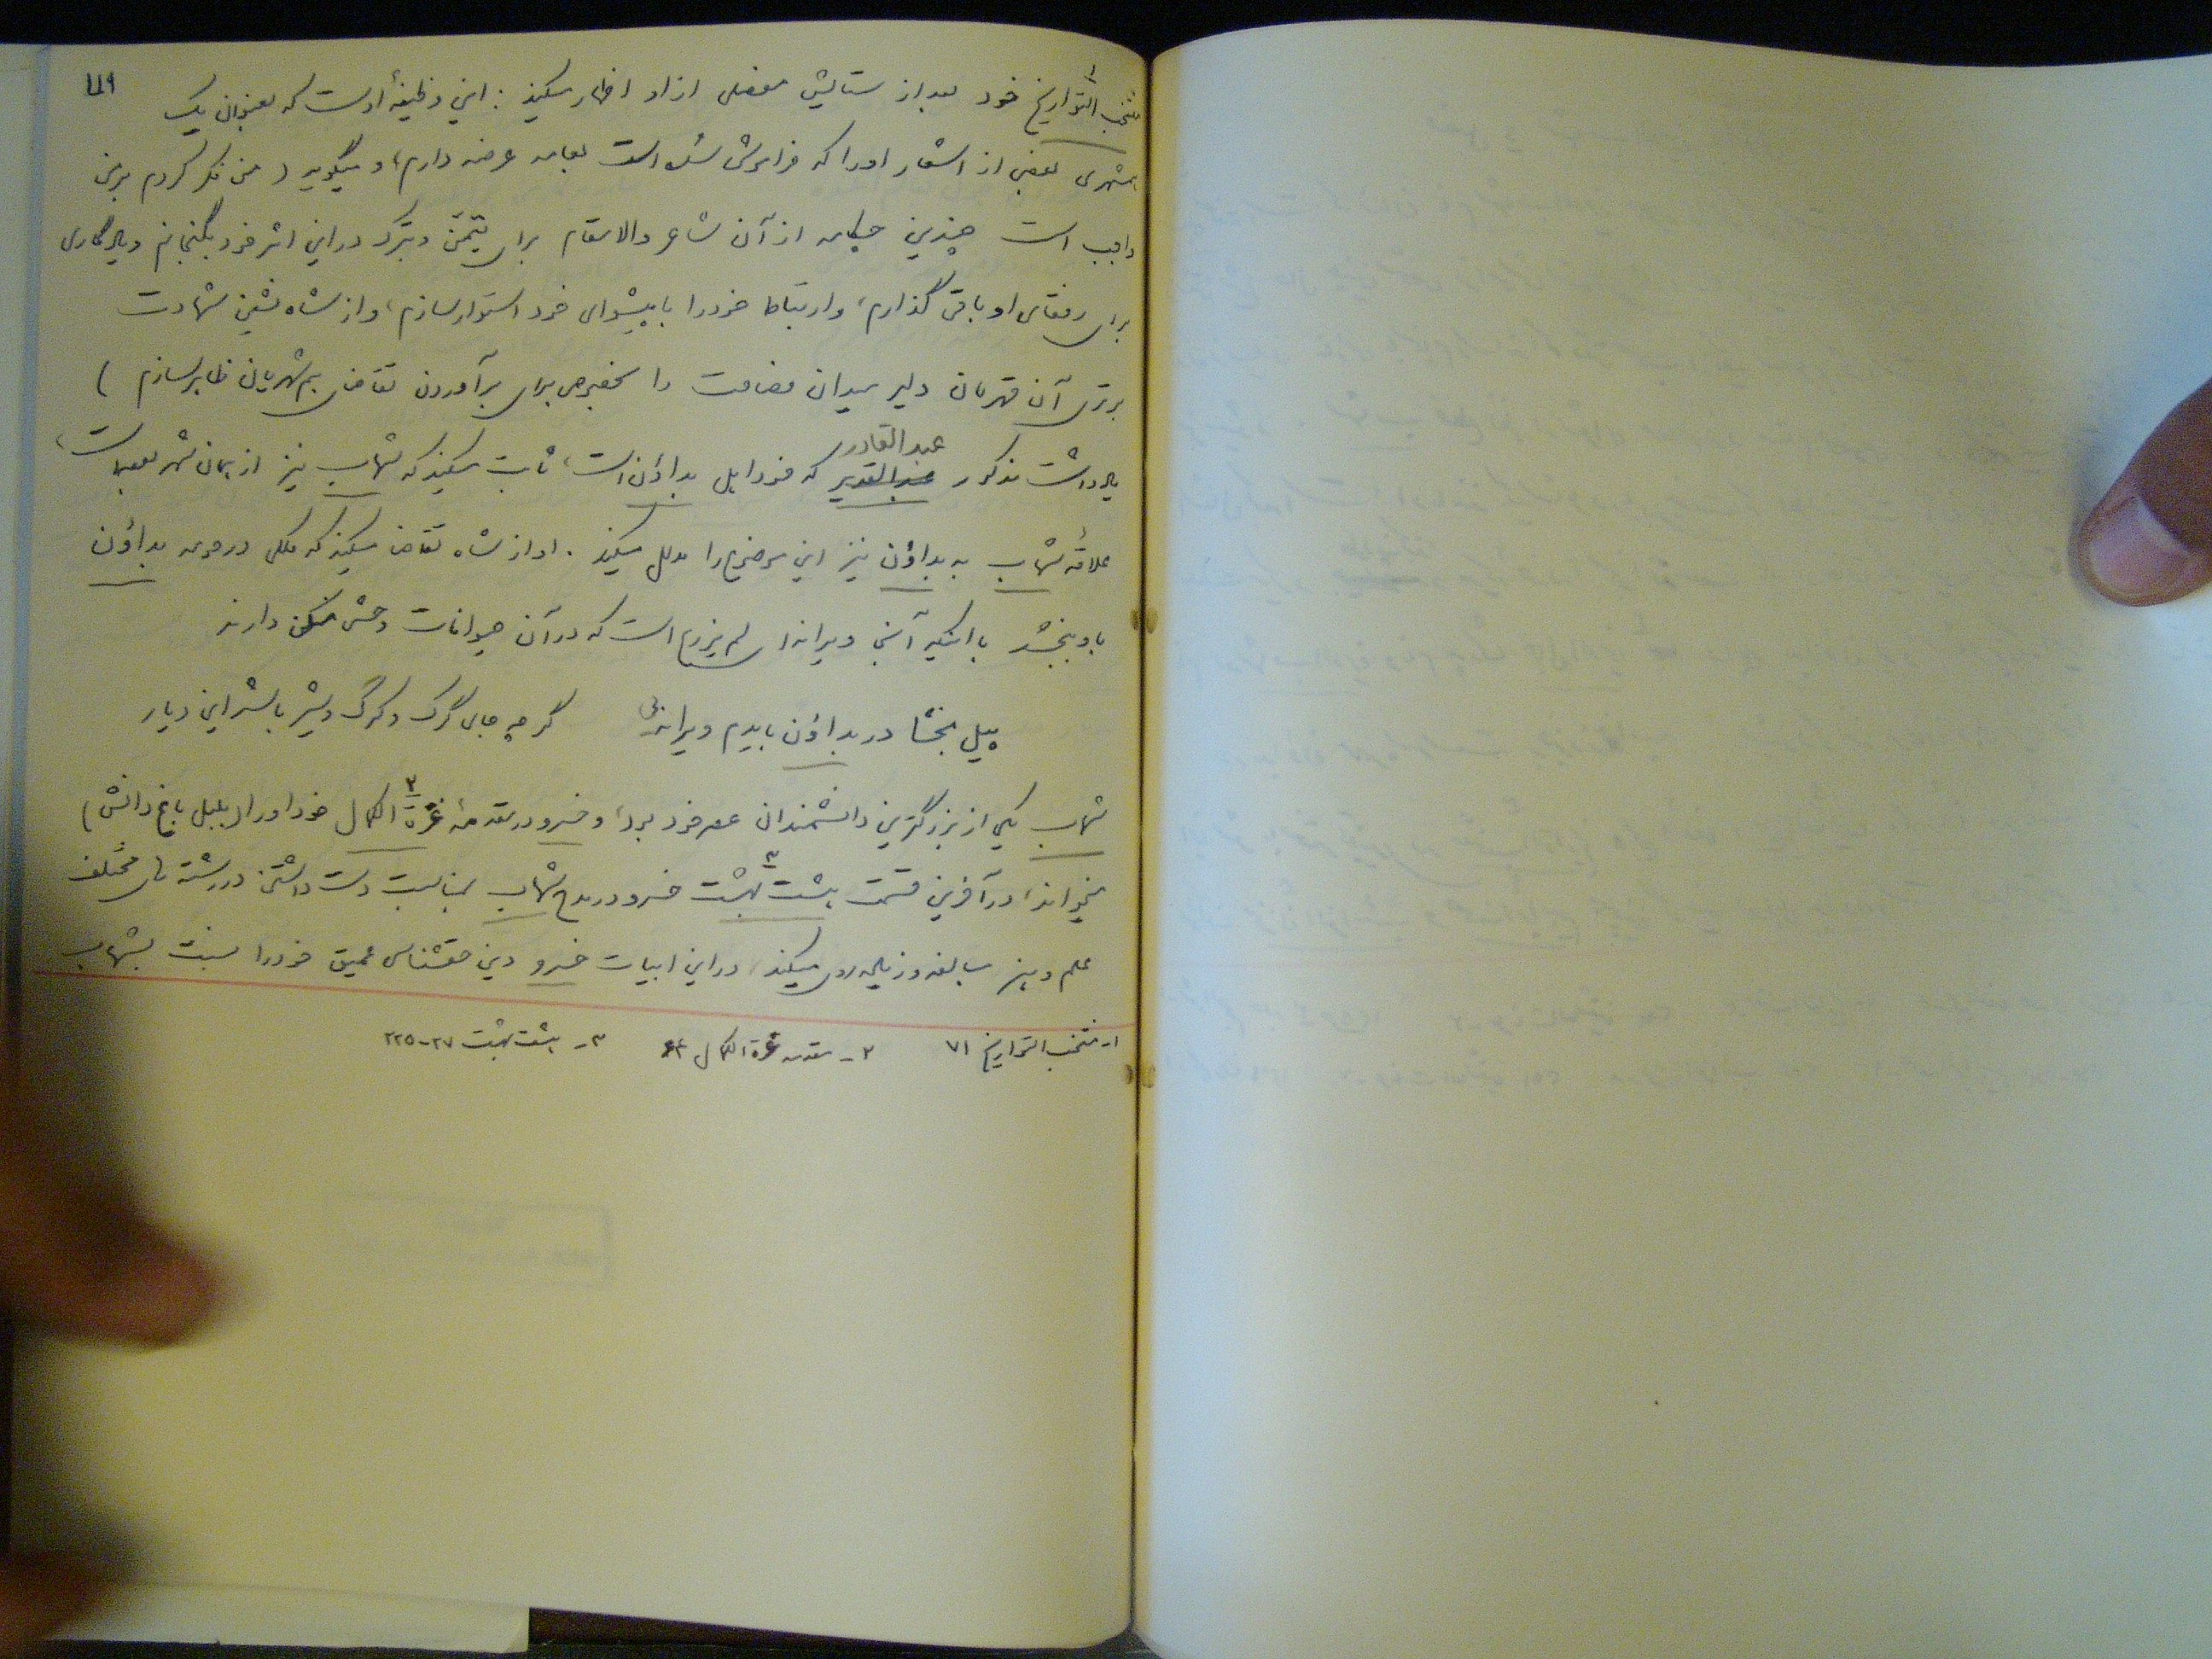 ۱۱۹
منتخب التواریخ۱ خود بعد از ستایش مفصلی از او اظهار میکند : این وظیفهٔ اوست که بعنوان یک
همشهری بعضی از اشعار او را که فراموش شده است بعامه عرضه دارم، و میگوید ( من فکر کردم بر من
واجب است چندین چکامه از آن شاعر والامقام برای تیمّن و تبرّک در این اثر خود بگنجانم و یادگاری
برای رفقای او باقی گذارم، و ارتباط خود را با پیشوای خود استوار سازم، و از شاه نشین شهادت
برتری آن قهرمان دلیر میدان فصاحت را بخصوص برای برآوردن تقاضای همشهریان ظاهر سازم )
عبدالقادر
یادداشت مذکور عبدالقدیر که خود اهل بداؤن است، ثابت میکند که شهاب نیز از همان شهر بوده است،
علاقهٔ شهاب به بداؤن نیز این موضوع را مدلل میکند . او از شاه تقاضا میکند که ملکی در حومه بداؤن
باو ببخشد با اینکه آنجا ویرانه‌ای لم یزرع است که در آن حیوانات وحشی مسکن دارند
پیل بخشا در بداؤن بایدم ویرانه‌ئی گر چه جای کرک و گرگ و شیر باشد این دیار
شهاب یکی از بزرگترین دانشمندان عصر خود بود، و خسرو در مقدمهٔ غرة۲ الکمال خود او را ( بلبل باغ دانش )
میخواند، در آخرین قسمت هشت بهشت۳ خسرو در مدح شهاب بمناسبت دست داشتن در رشته های مختلف
علم و هنر مبالغه و زیاده روی میکند، در این ابیات خسرو دین حقشناسی عمیق خود را نسبت بشهاب
۱- منتخب التواریخ ۷۱ ۲- مقدمه غرة الکمال ۳- هشت بهشت ۲۷-۲۲۵